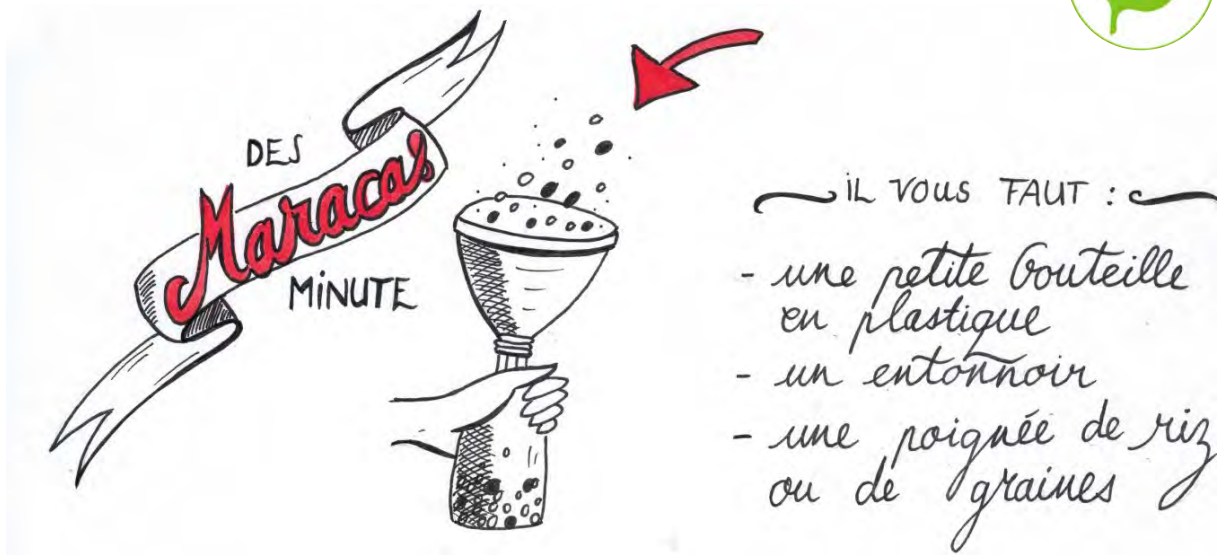 DES
Maracas
MINUTE
IL VOUS FAUT :
- une petite bouteille
en plastique
- un entonnoir
- une poignée de riz
ou de graines